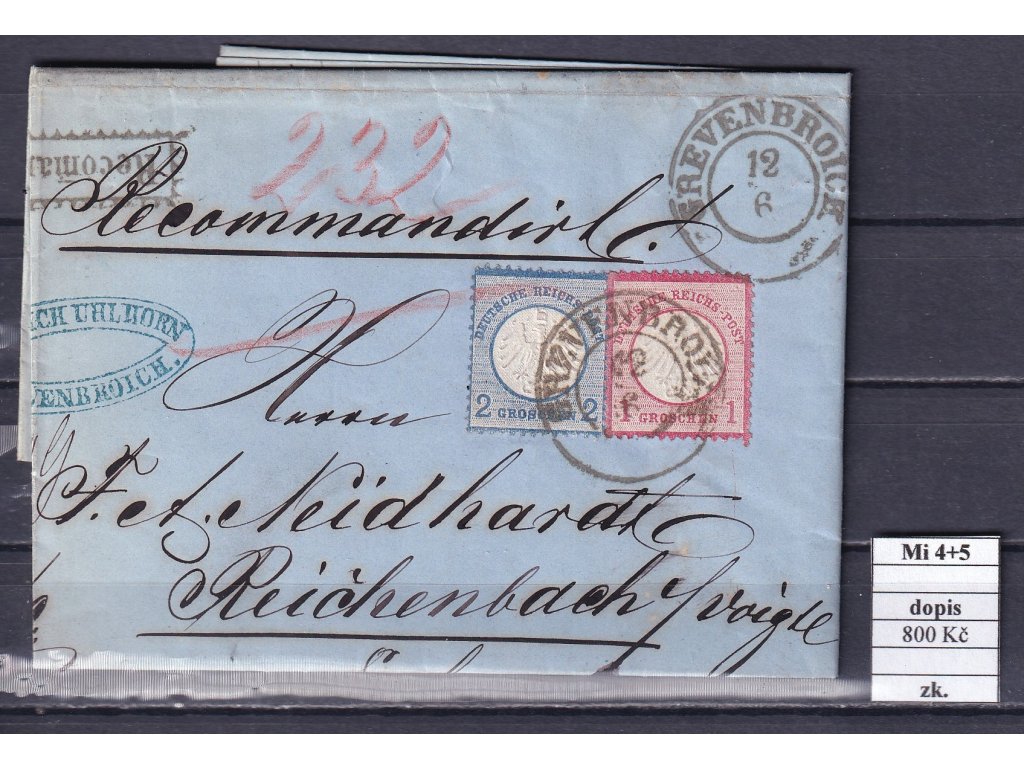 232
GREVENBROICH
12
6
Recoma
Recommandirt.
ECH UHLHORN
VENBROICH.
DEUTSCHE REICHS-POST
2 GROSCHEN 2
DEUTSCHE REICHS-POST
1 GROSCHEN 1
GREVENBROICH
12
6
Herrn
F. et A. Neidhardt
Reichenbach i/Voigtl
Mi 4+5
dopis
800 Kč
zk.